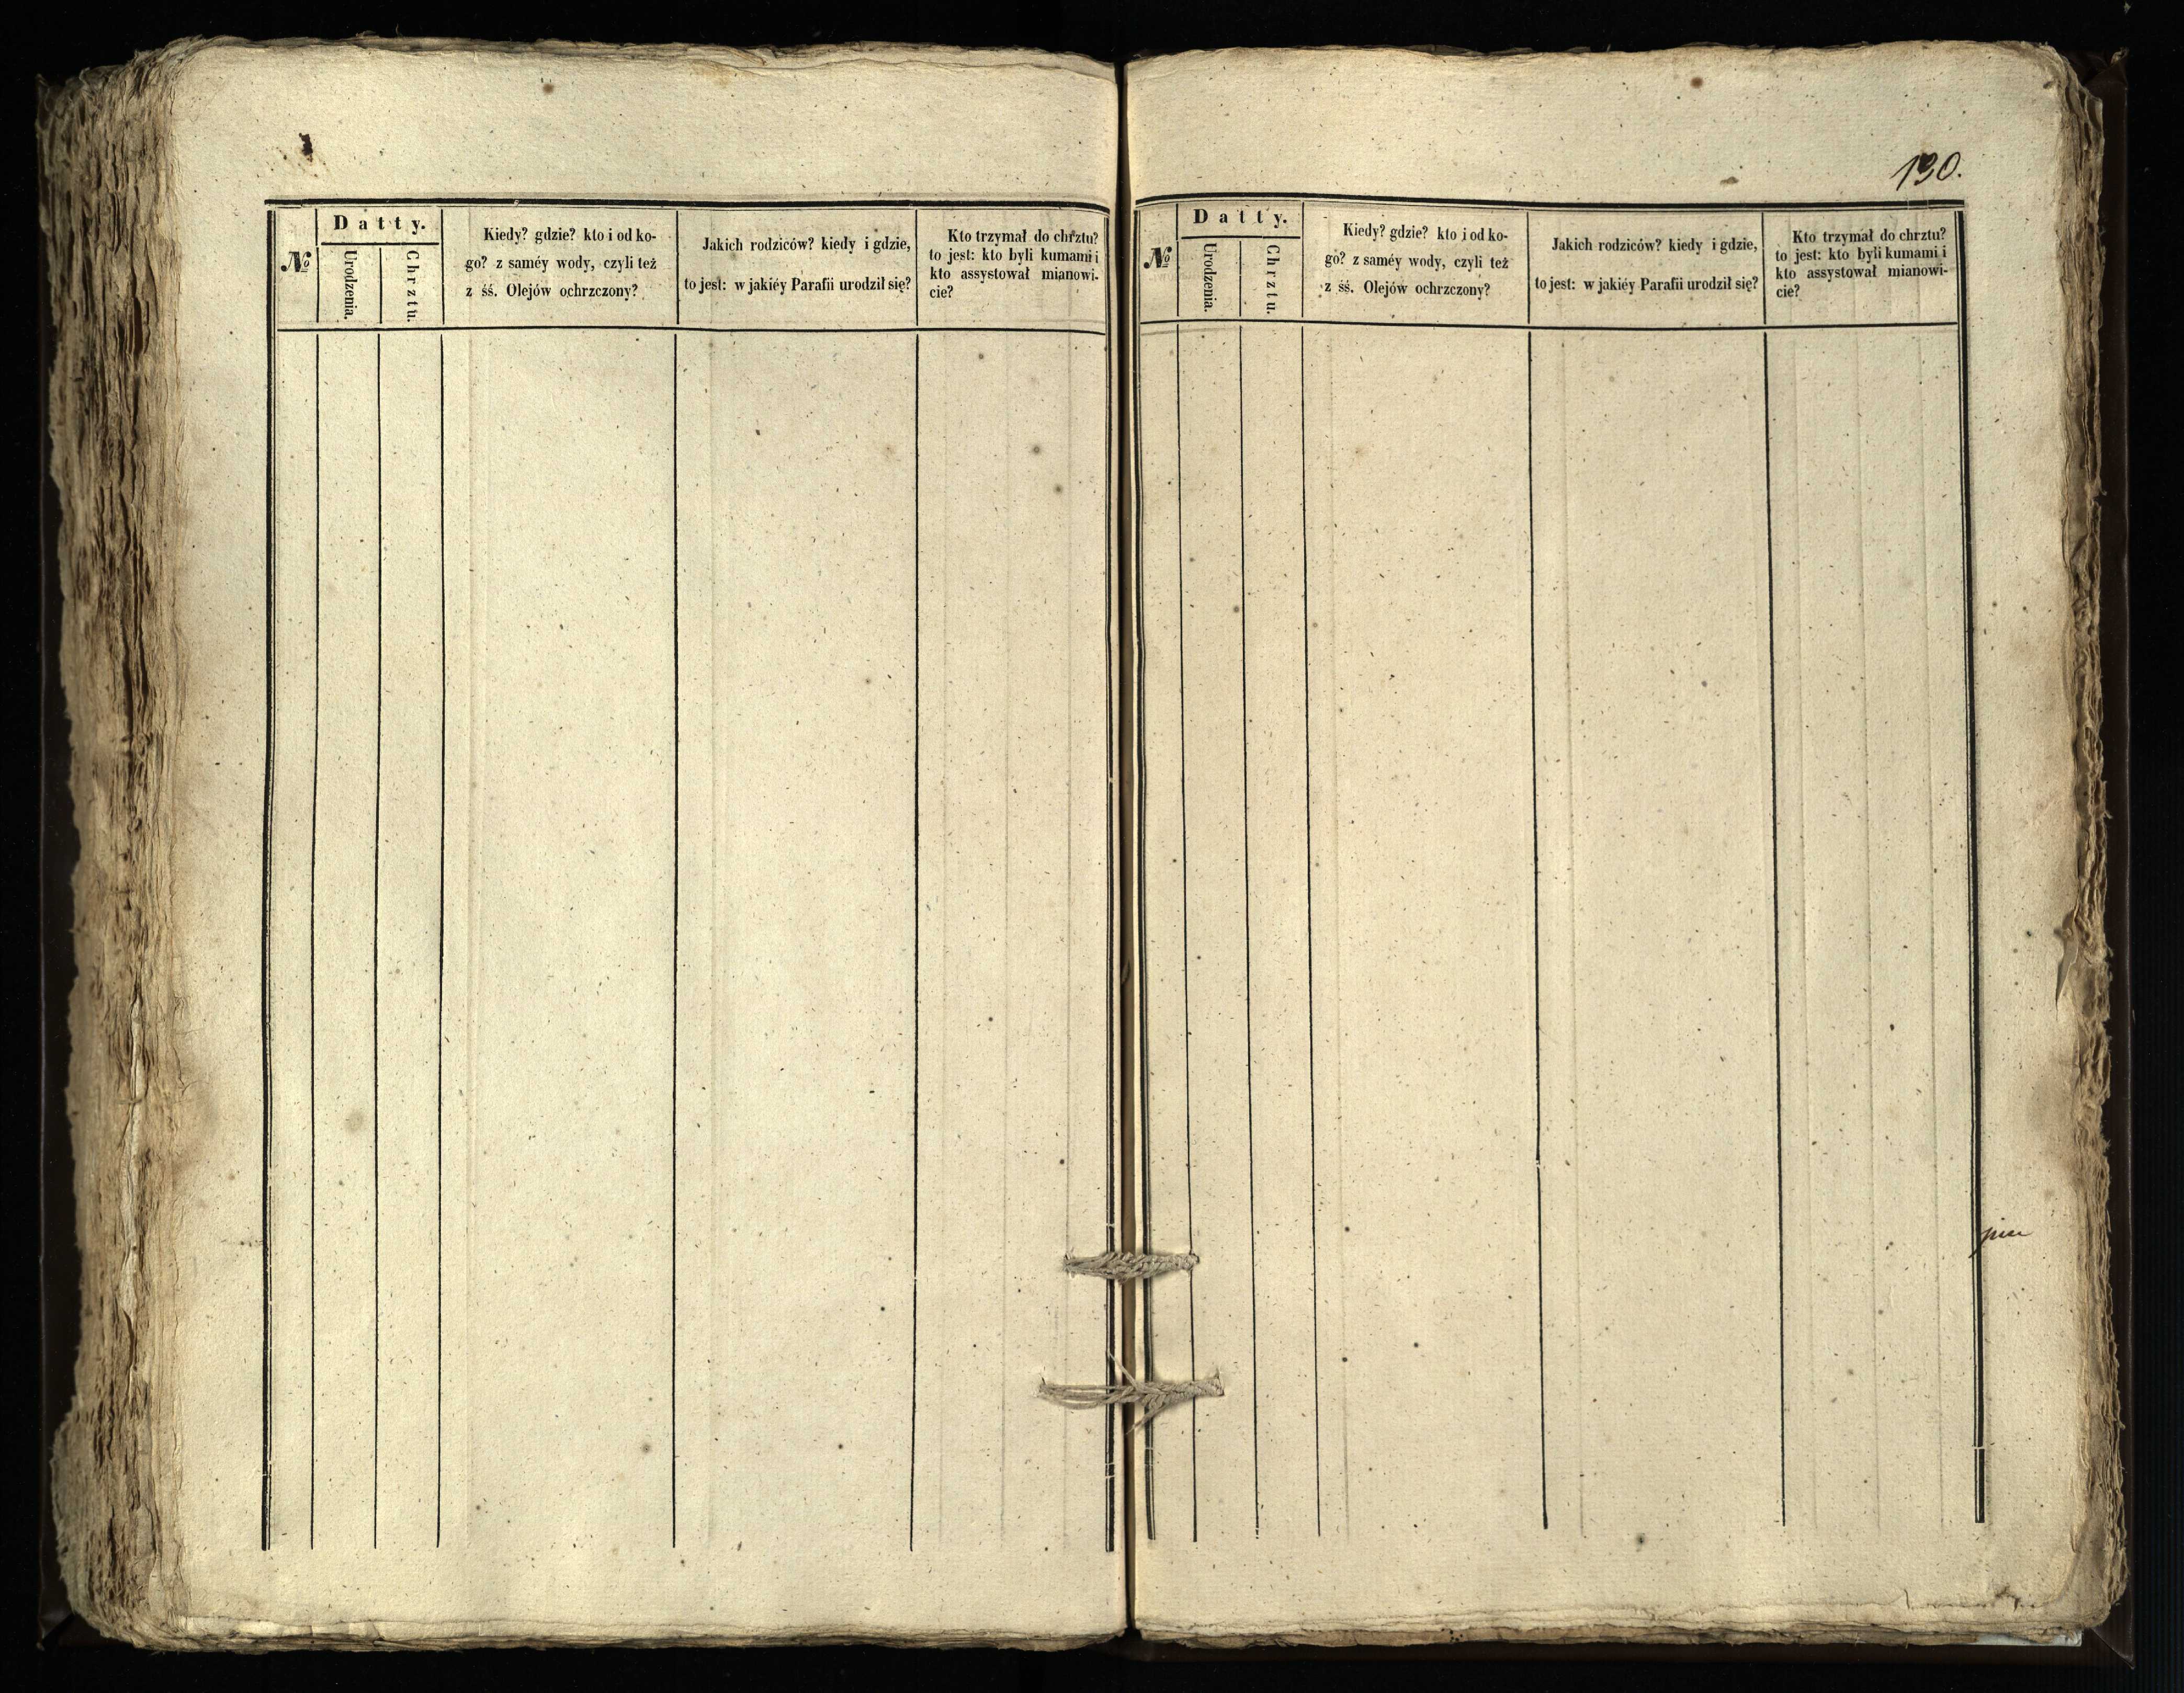 130.
№
Datty.
Urodzenia.
Chrztu.
Kiedy? gdzie? kto i od ko-
go? z saméy wody, czyli też
z śś. Olejów ochrzczony?
Jakich rodziców? kiedy i gdzie,
to jest: w jakiéy Parafii urodził się?
Kto trzymał do chrztu?
to jest: kto byli kumami i
kto assystował mianowi-
cie?
№
Datty.
Urodzenia.
Chrztu.
Kiedy? gdzie? kto i od ko-
go? z saméy wody, czyli też
z śś. Olejów ochrzczony?
Jakich rodziców? kiedy i gdzie,
to jest: w jakiéy Parafii urodził się?
Kto trzymał do chrztu?
to jest: kto byli kumami i
kto assystował mianowi-
cie?